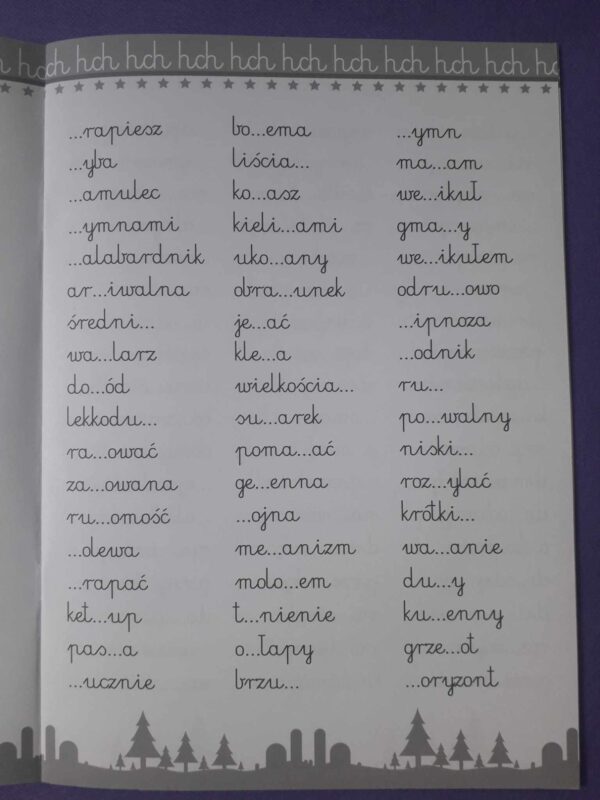 h hch hch hch hch hch hch hch hch hch hc
...rapiesz bo...ema ...ymn
...yba liścia... ma...am
...amulec ko...asz we...ikuł
...ymnami kieli...ami gma...y
...alabardnik uko...any we...ikułem
ar...iwalna obra...unek odru...owo
średni... je...ać ...ipnoza
wa...larz kle...a ...odnik
do...ód wielkościa... ru...
lekkodu... su...arek po...walny
ra...ować poma...ać niski...
za...owana ge...enna roz...ylać
ru...omość ...ojna krótki...
...olewa me...anizm wa...anie
...rapać moło...em du...y
ket...up t...nienie ku...enny
pas...a o...łapy grze...ot
...ucznie brzu... ...oryzont